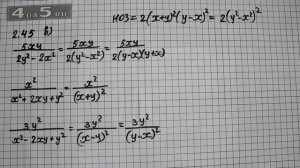 4 on 5.RU
2.45 б)
НОЗ = 2(x+y)²(y-x)² = 2(y²-x²)²
5xy / 2y² - 2x² = 5xy / 2(y²-x²) = 5xy / 2(y-x)(y+x)
x² / x² + 2xy + y² = x² / (x+y)²
3y² / x² - 2xy + y² = 3y² / (x-y)² = 3y² / (y-x)²